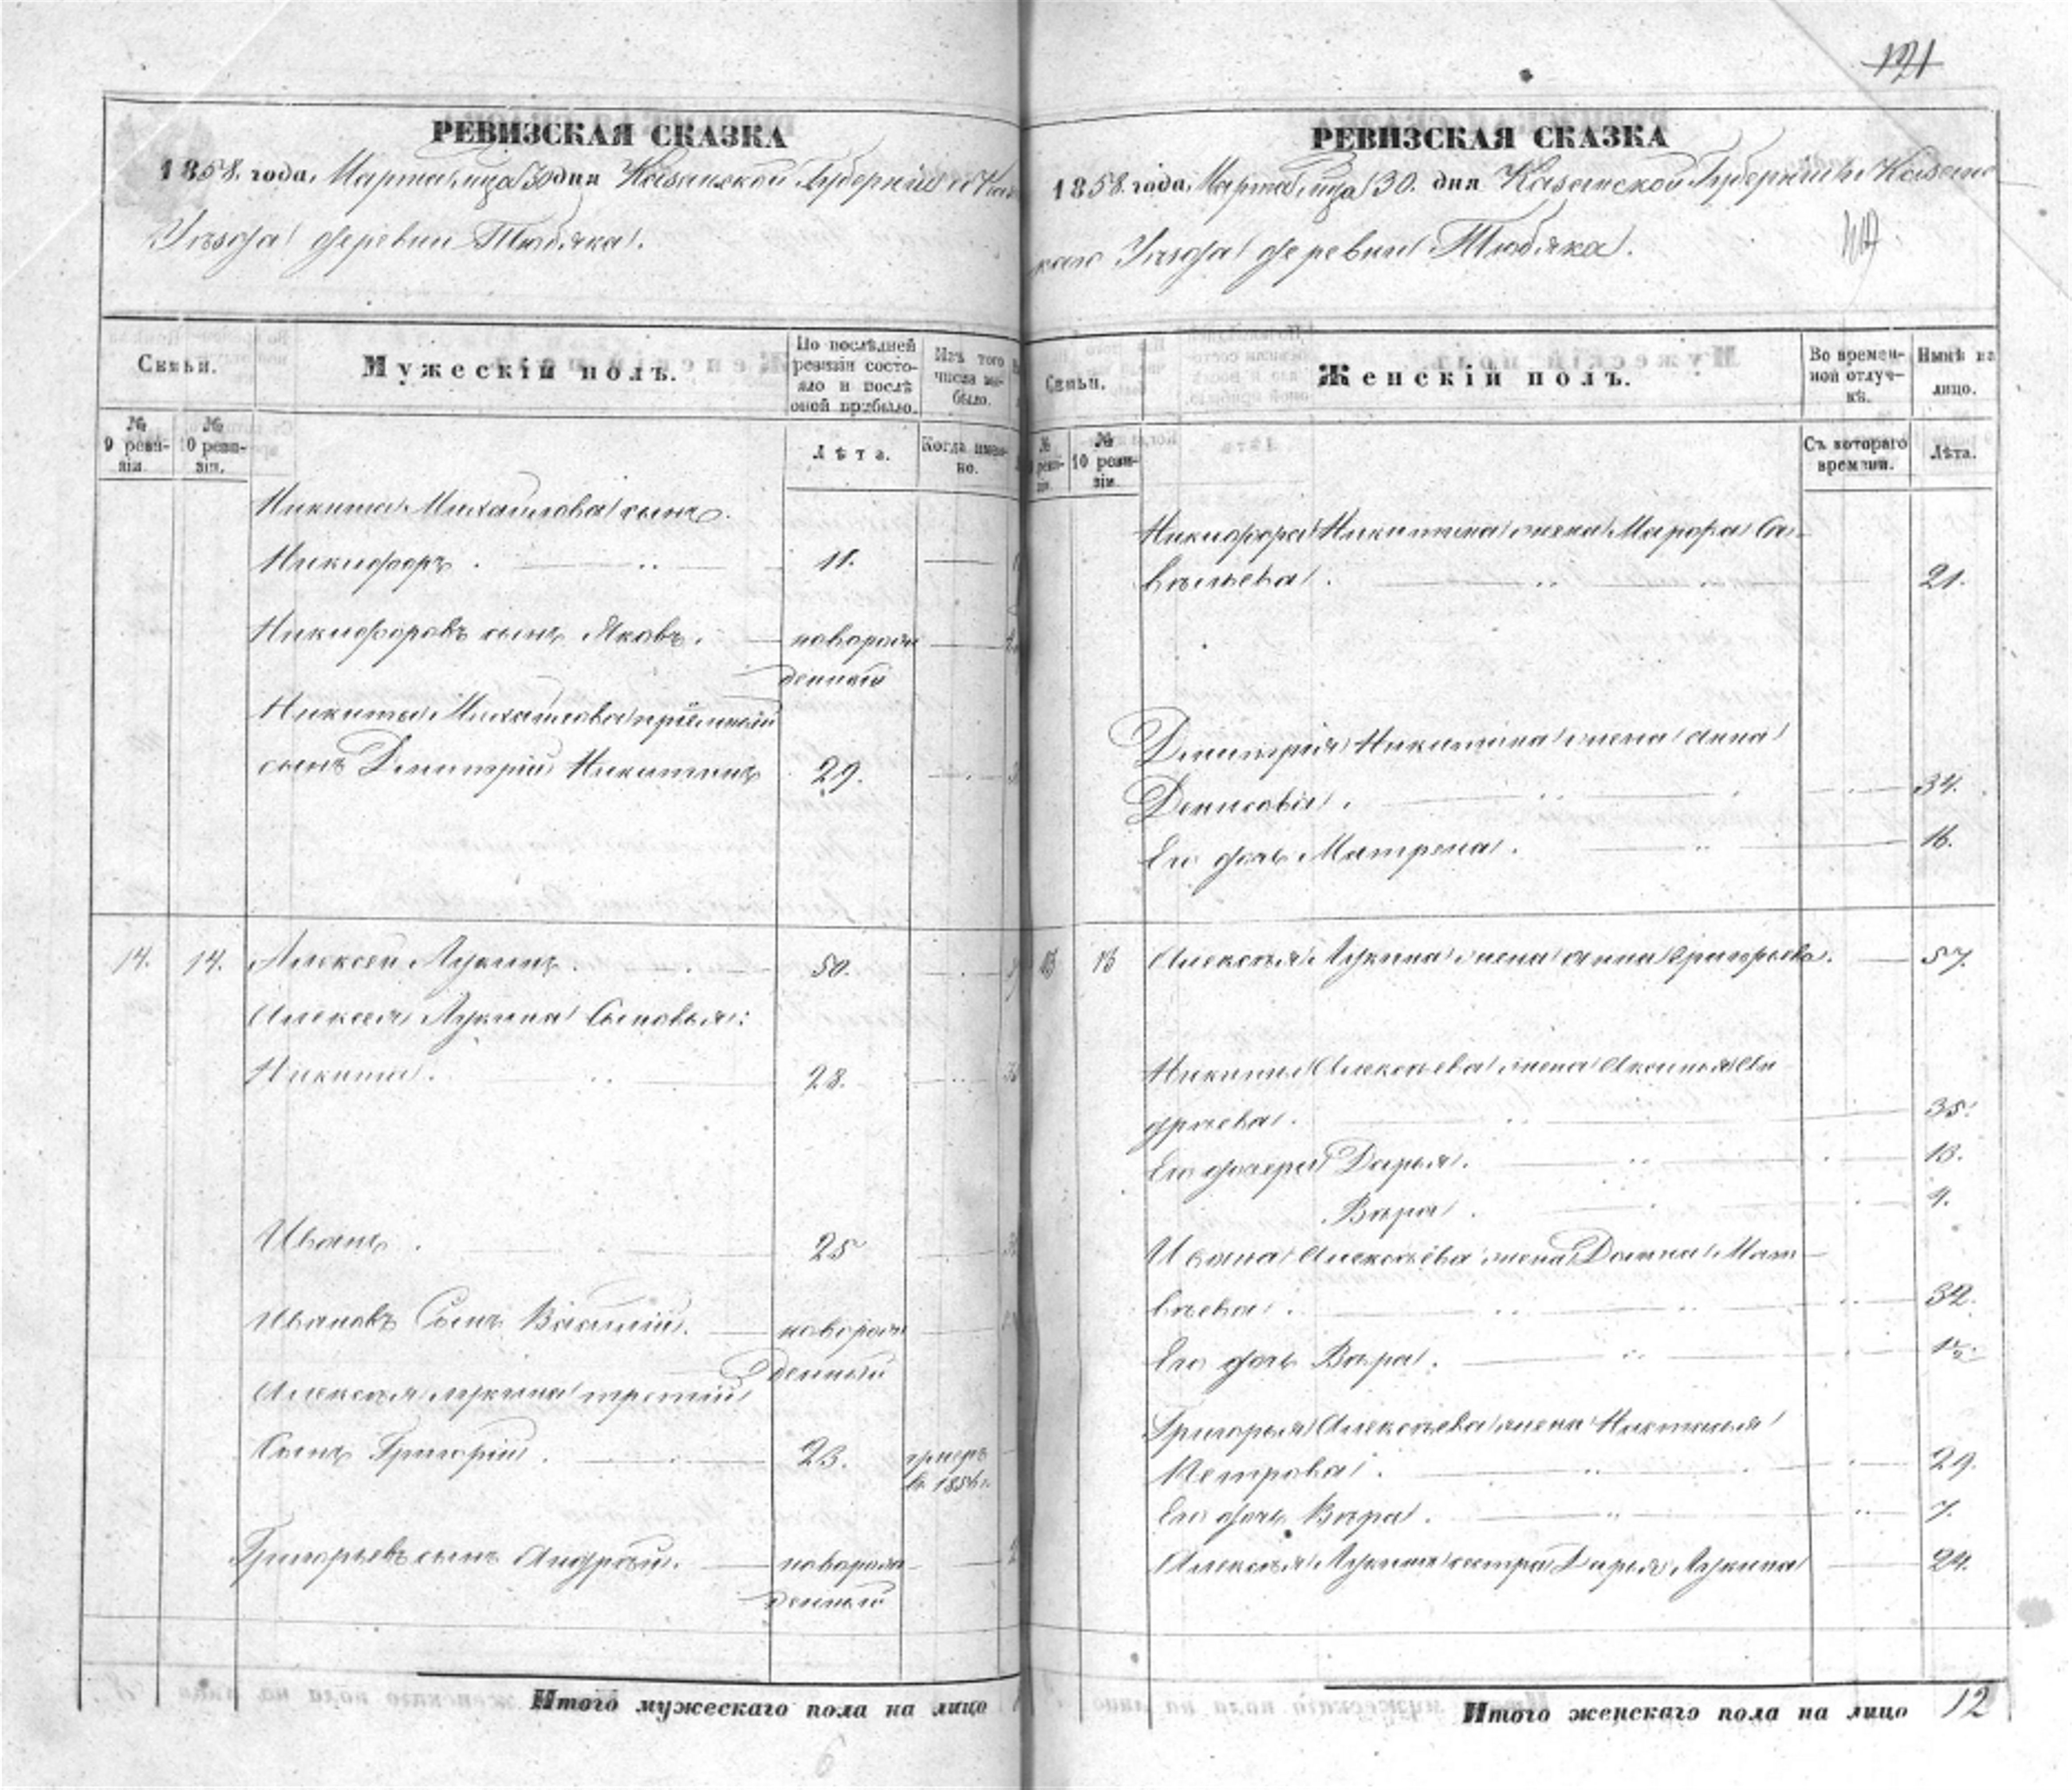 121
РЕВИЗСКАЯ СКАЗКА
1858. года, Марта мца 30 дня Казанской Губернiи и Каз
Уѣзда деревни Тюбяка.
Семьи.
Мужескiй полъ.
По послѣдней ревизiи состояло и послѣ оной прибыло.
Изъ того числа выбыло.
№ 9 ревизiи.
№ 10 ревизiи.
Лѣта.
Когда именно.
Никиты Михайлова сынъ
Никифоръ. 11.
Никифоровъ сынъ Яковъ. новорож
денный
Никиты Михайлова прiемный
сынъ Дмитрiй Никитинъ 29.
14. 14. Алексей Лукинъ. 50.
Алексея Лукина Сыновья:
Никита. 28.
Иванъ. 25
Ивановъ Сынъ Василiй. новорож
денный
Алексея Лукина третiй
Сынъ Григорiй. 23. умеръ
въ 1856 г.
Григорьевъ сынъ Андрей. новорож
денный
Итого мужескаго пола на лицо
РЕВИЗСКАЯ СКАЗКА
1858. года, Марта мца 30. дня Казанской Губернiи и Казанс
каго Уѣзда деревни Тюбяка.
Семьи.
Женскiй полъ.
Во временной отлучкѣ.
Нынѣ на лицо.
№ ревизiи.
№ 10 ревизiи.
Съ котораго времяни.
Лѣта.
Никифора Никитина жена Марфа Са
вельева. 21.
Дмитрiя Никитина жена Анна
Денисова. 34.
Его дочь Матрена. 16.
Алексѣя Лукина жена Анна Григорьева. 57.
Никиты Алексѣева жена Аксинья Ан
дреева. 35.
Его дочери Дарья. 13.
Вѣра. 4.
Ивана Алексѣева жена Домна Мат
вѣева. 32.
Его дочь Вѣра. 1½.
Григорья Алексѣева жена Наталья
Петрова. 29.
Его дочь Вѣра. 7.
Алексѣя Лукина сестра Дарья Лукина 24.
Итого женскаго пола на лицо 12